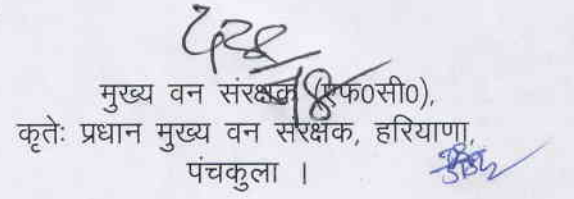 मुख्य वन संरक्षक (एफ0सी0),
कृतेः प्रधान मुख्य वन संरक्षक, हरियाणा,
पंचकुला ।